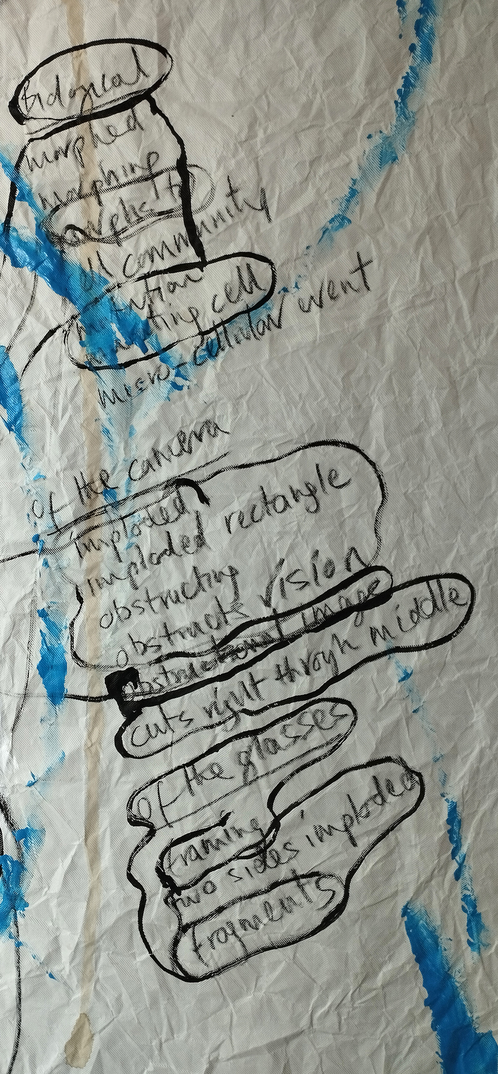 Biological
morphed
morphing
community
mutation
mutating cell
micro-cellular event
of the camera
imploded
imploded rectangle
obstructing
obstructs vision
obstructional image
cuts right through middle
of the glasses
framing
two sides imploded
fragments